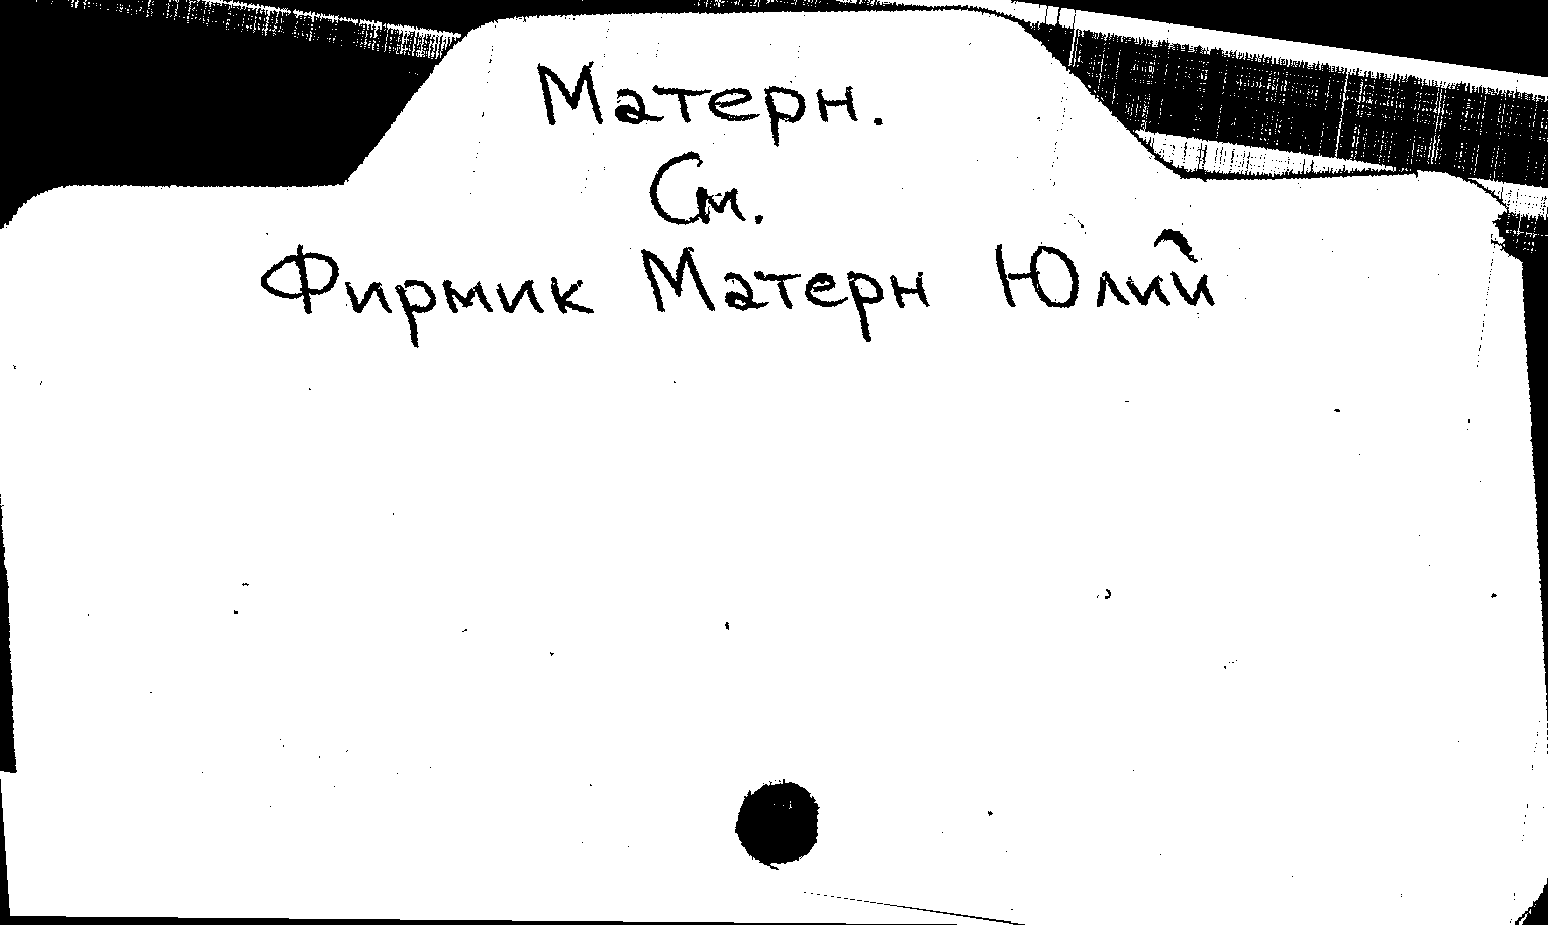 Матерн.
См.
Фирмик Матерн Юлий